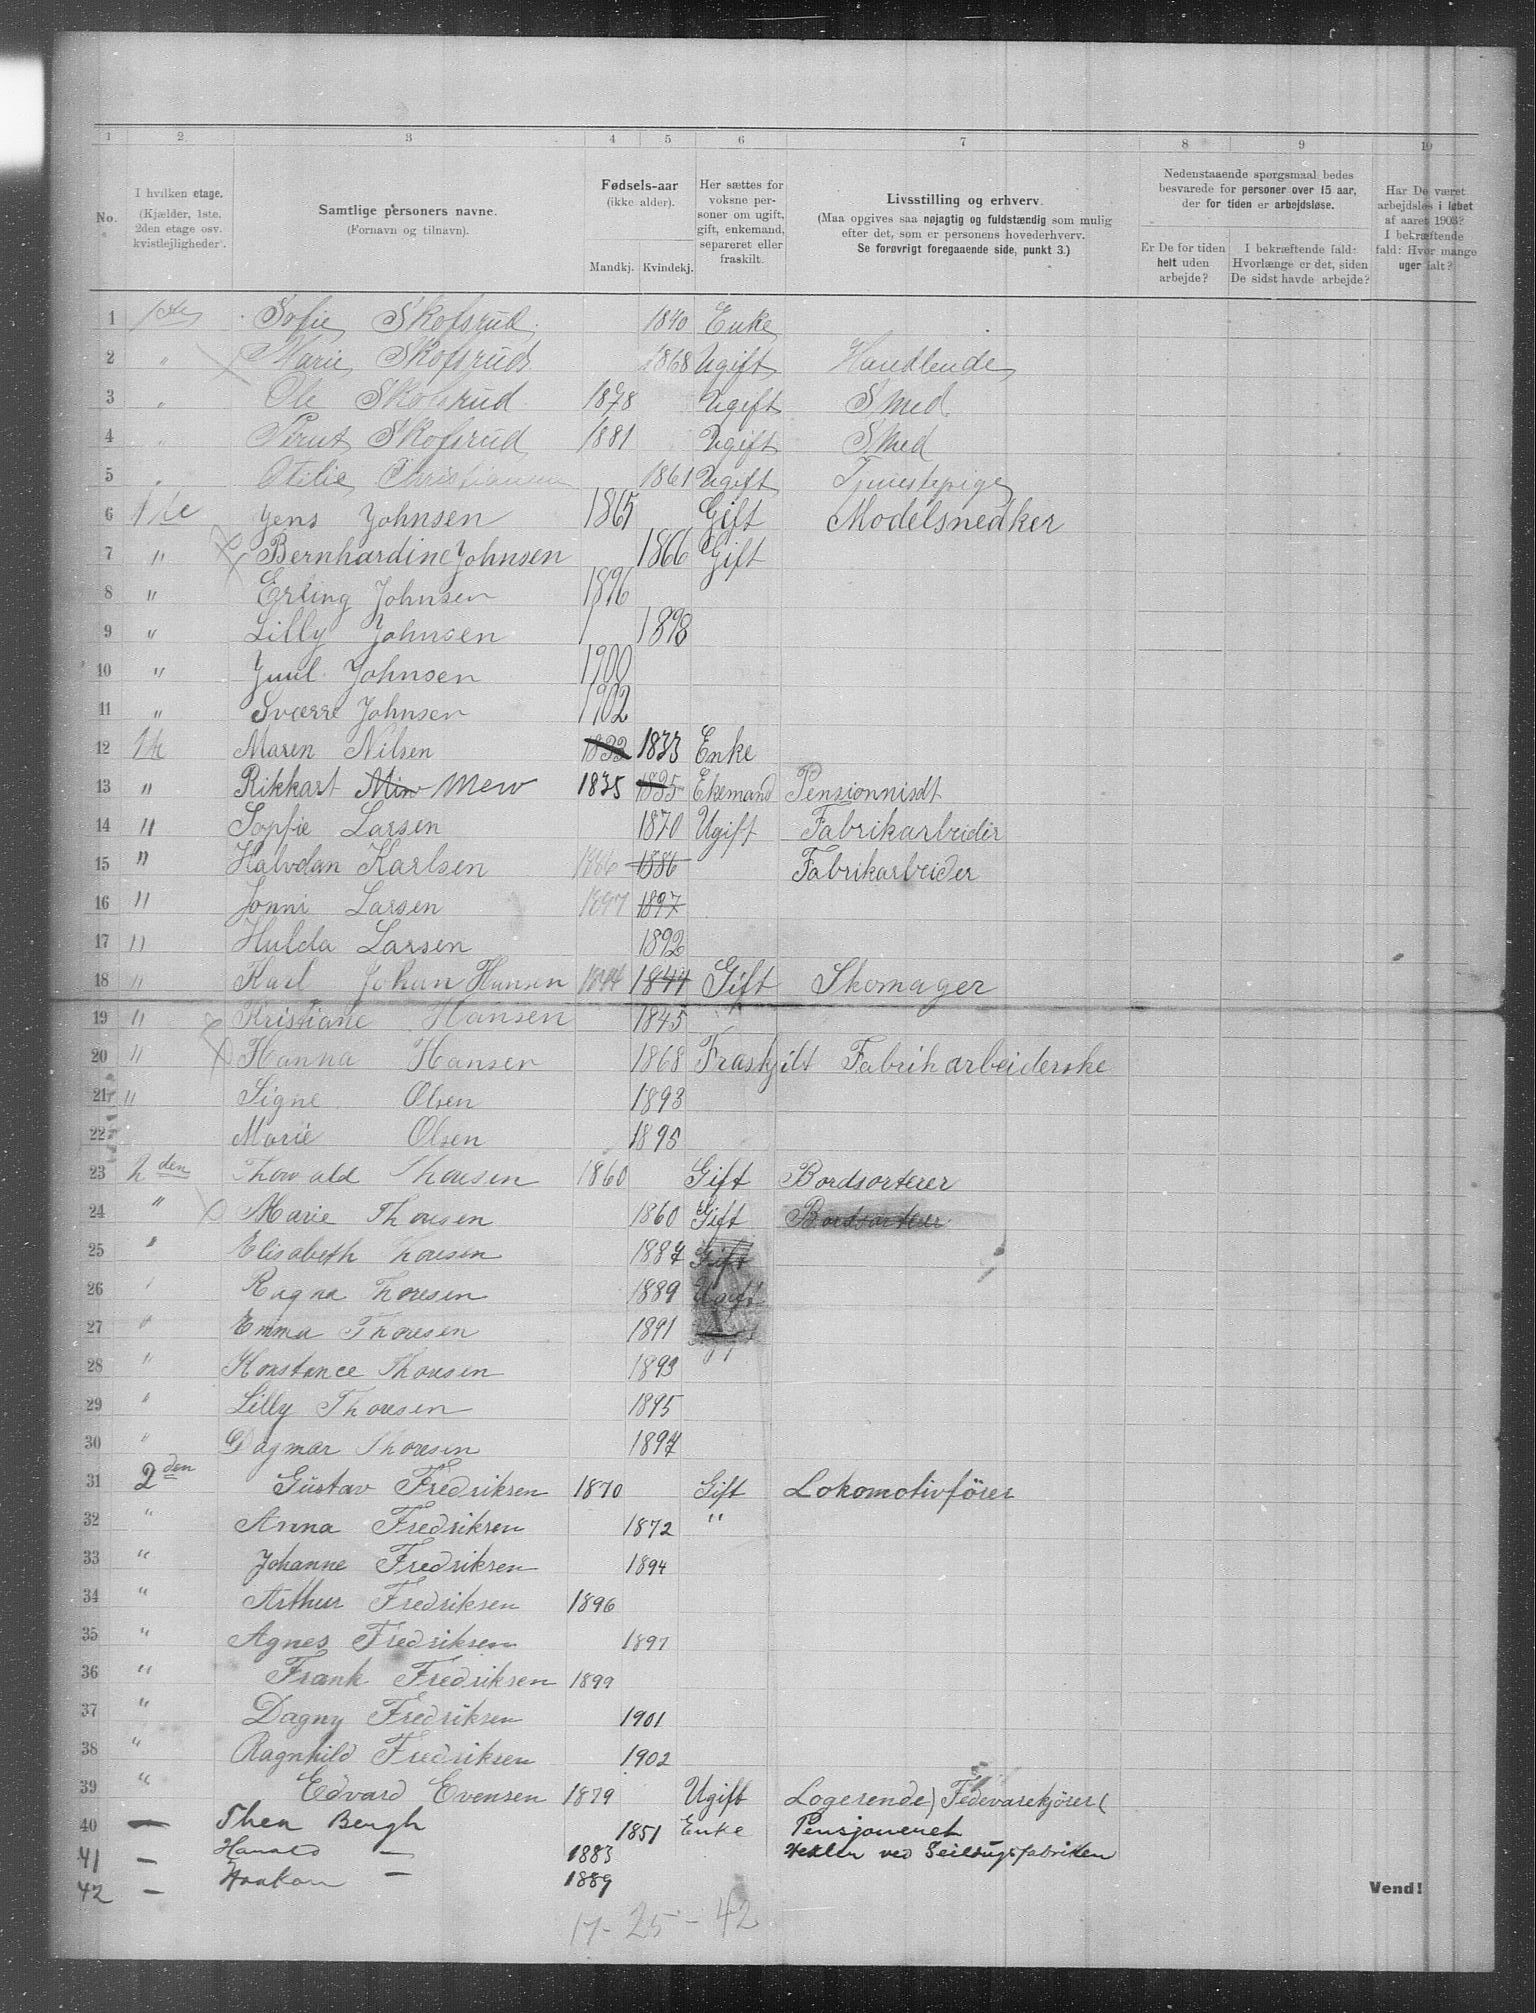 1 2 3 4 5 6 7 8 9 10
No.
I hvilken etage.
(Kjælder, 1ste,
2den etage osv.
kvistlejligheder.
Samtlige personers navne.
(Fornavn og tilnavn).
Fødsels-aar
(ikke alder).
Mandkj. Kvindekj.
Her sættes for
voksne per-
soner om ugift,
gift, enkemand,
separeret eller
fraskilt.
Livsstilling og erhverv.
(Maa opgives saa nøjagtig og fuldstændig som mulig
efter det, som er personens hovederhverv.
Se forøvrigt foregaaende side, punkt 3.)
Nedenstaaende spørgsmaal bedes
besvarede for personer over 15 aar,
der for tiden er arbejdsløse.
Er De for tiden
helt uden
arbejde?
I bekræftende fald:
Hvorlænge er det, siden
De sidst havde arbejde?
Har De været
arbejdsløs i løbet
af aaret 1903?
I bekræftende
fald: Hvor mange
uger ialt?
1 1ste Sofie Skofsrud 1840 Enke
2 " Marie Skofsrud 1868 Ugift Handlende
3 " Ole Skofsrud 1878 Ugift Smed
4 " Skofsrud 1881 Ugift Smed
5 " Otilie Christiansen 1861 Ugift Tjenestepige
6 1ste Jens Johnsen 1865 Gift Modelsnedker
7 " Bernhardine Johnsen 1866 Gift
8 " Erling Johnsen 1896
9 " Lilly Johnsen 1898
10 " Juul Johnsen 1900
11 " Sværre Johnsen 1902
12 1ste Maren Nilsen 1833 1833 Enke
13 " Rikkart Min Mew 1835 1835 Ekemand Pensionnisdt
14 " Sopfie Larsen 1870 Ugift Fabrikarbeider
15 " Halvdan Karlsen 1886 1886 Fabrikarbeider
16 " Jonni Larsen 1897 1897
17 " Hulda Larsen 1892
18 " Karl Johan Hansen 1844 1844 Gift Skomager
19 " Kristiane Hansen 1845
20 " Hanna Hansen 1868 Fraskjilt Fabrikarbeiderske
21 " Signe Olsen 1893
22 Marie Olsen 1895
23 2den Thorvald Thoresen 1860 Gift Bordsorterer
24 " Marie Thoresen 1860 Gift Bordsorterer
25 " Elisabeth Thoresen 1887 Gift
26 " Ragna Thoresen 1889 Ugift
27 " Emma Thoresen 1891
28 " Konstance Thoresen 1893
29 " Lilly Thoresen 1895
30 " Dagmar Thoresen 1897
31 2den Gustav Fredriksen 1870 Gift Lokomotivfører
32 " Anna Fredriksen 1872 "
33 " Johanne Fredriksen 1894
34 " Arthur Fredriksen 1896
35 " Agnes Fredriksen 1897
36 " Frank Fredriksen 1899
37 " Dagny Fredriksen 1901
38 " Ragnhild Fredriksen 1902
39 " Edvard Evensen 1879 Ugift Logerende) Fedevarekjører(
40 — Thea Bergh 1851 Enke Pensjoneret
41 — Harald — 1883 ved Seildugsfabriken
42 — Haakon — 1889
Vend!
17 - 25 - 42